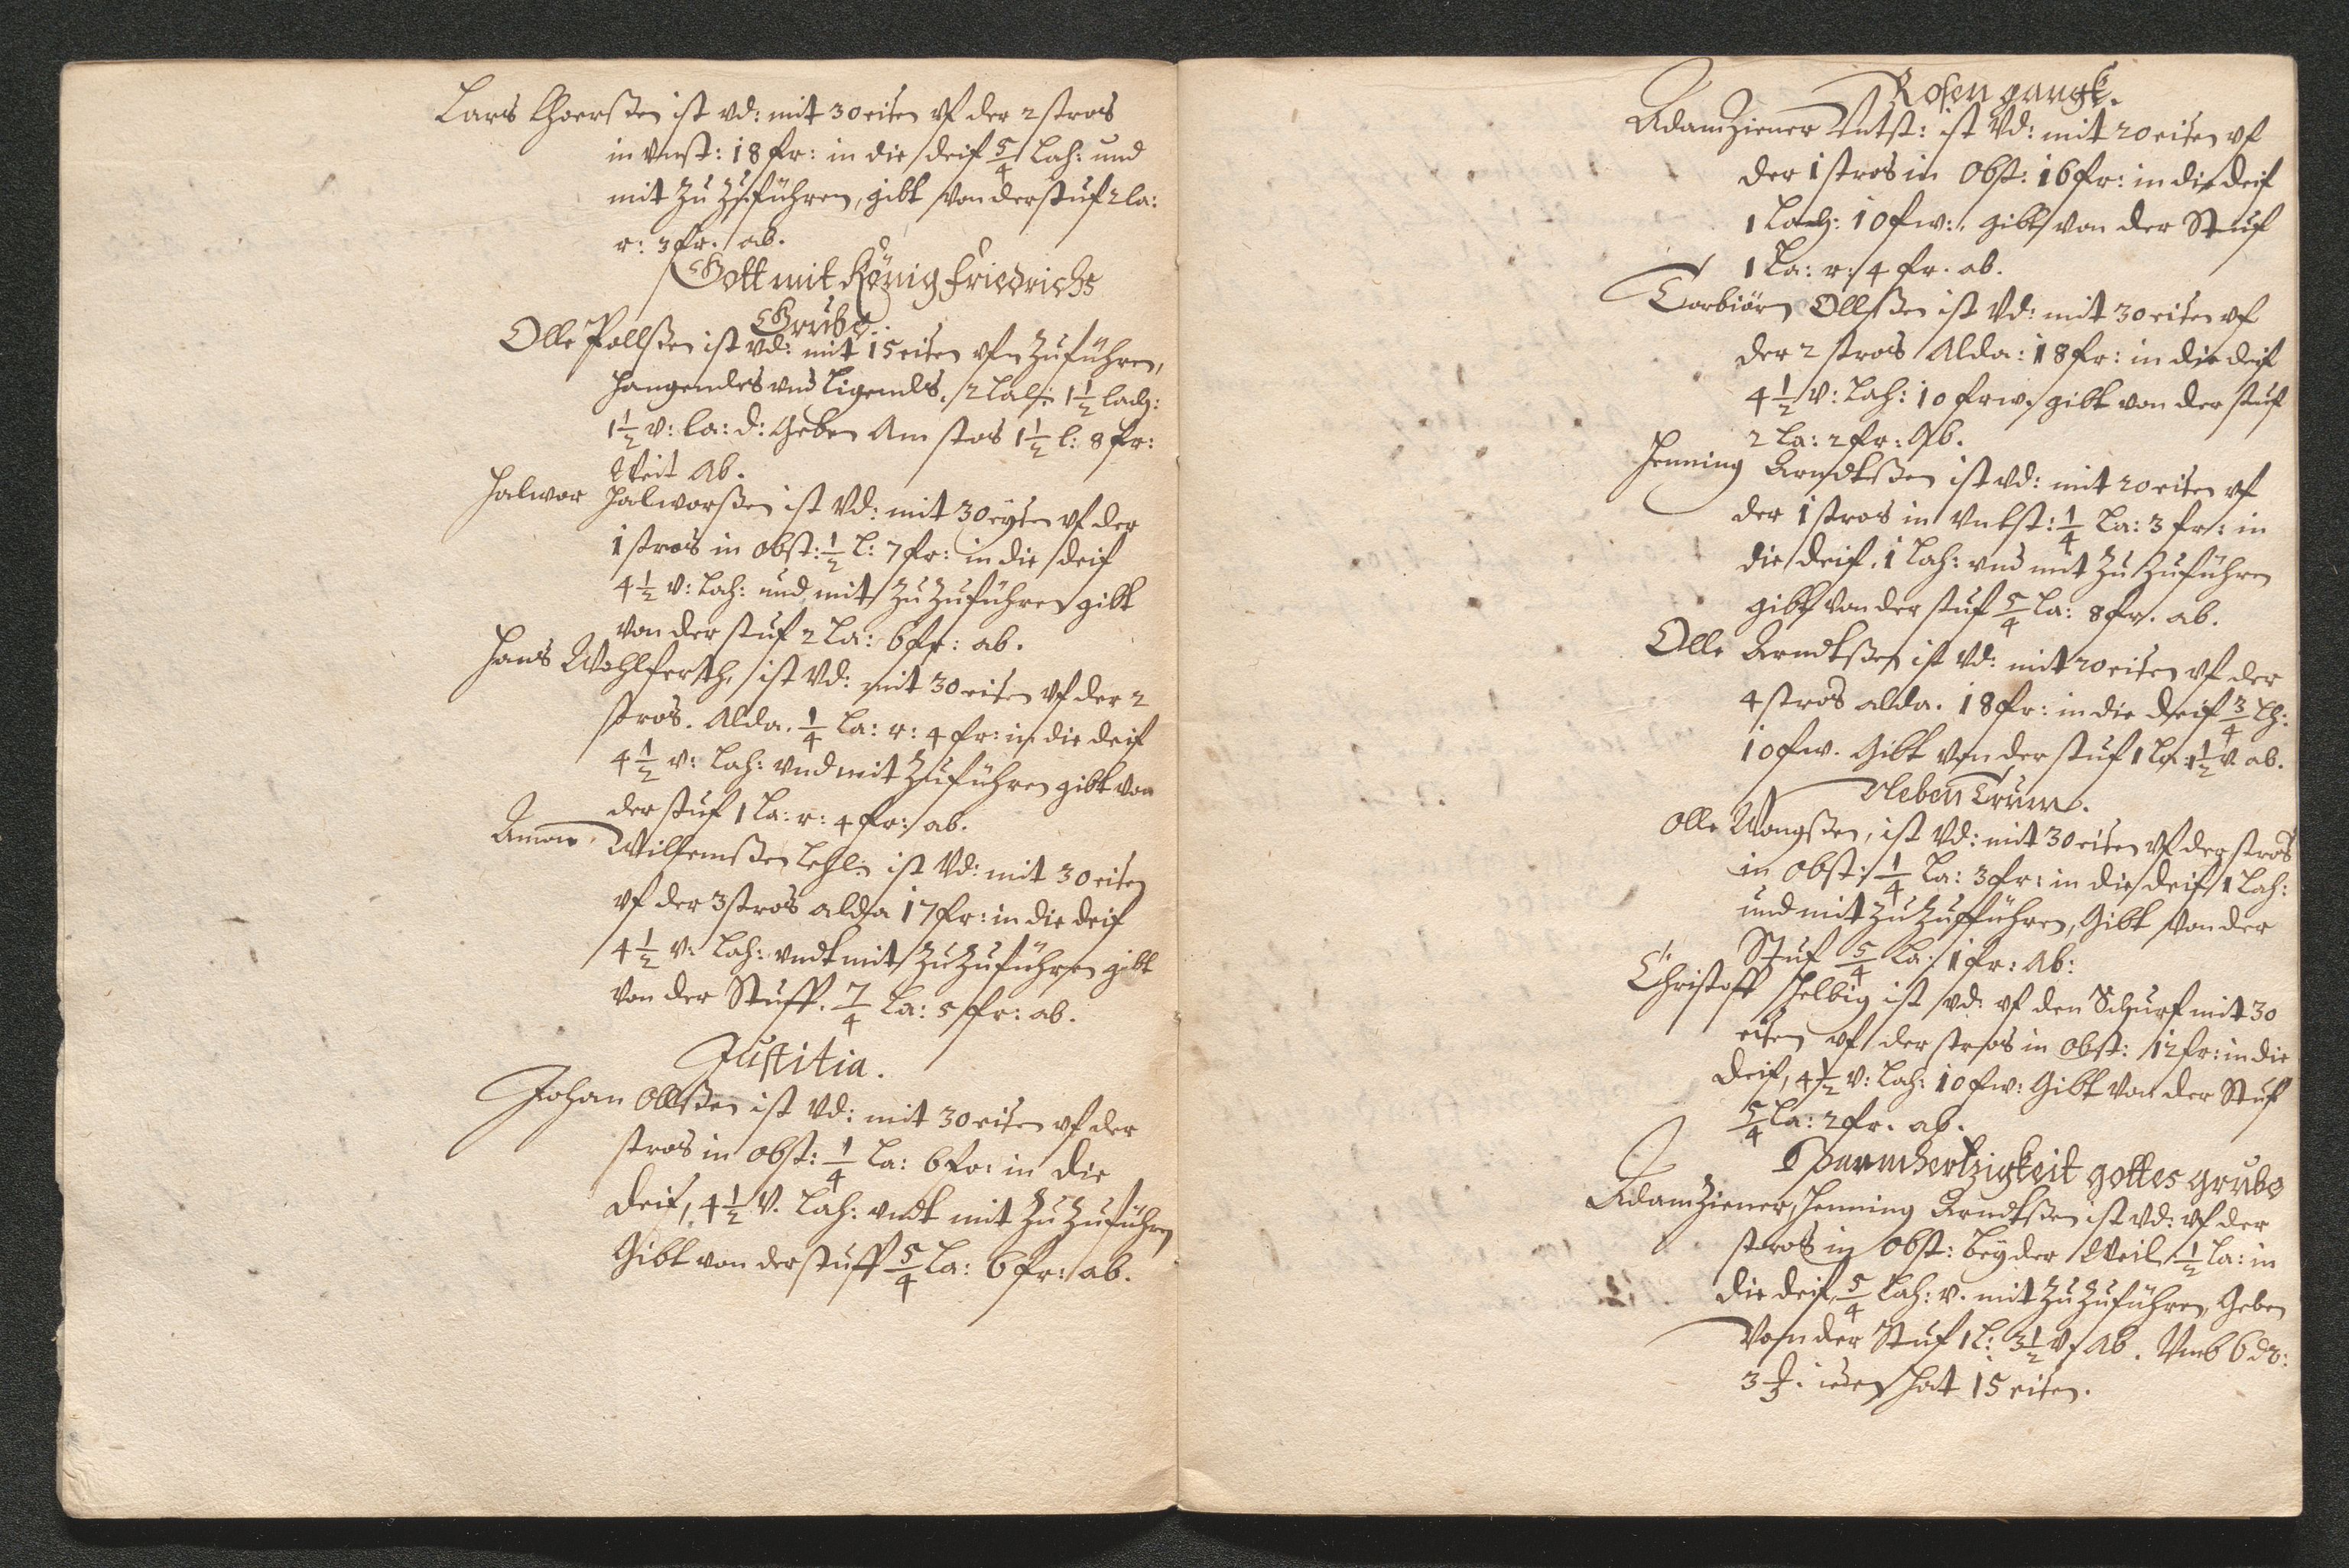 Lars Thoerßen ist vd: mit 30 eisen vf der 2 stros
in vnst: 18 fr: in die deif 5/4 Lah: und
mit zu Zuführen, gibt von der stuf 2 la:
r: 3 fr. ab.
Gott mit König Friedrichs
Grube.
Olle Pollßen ist vd: mit 15 eisen vfn Zuführen,
hangendes vnd Ligends. 2 lah 1 1/2 lach:
1 1/2 v: la: d: Geben Am stos 1 1/2 l: 8 fr:
Weit Ab.
Halwor Halworßen ist Vd: mit 30 eysen vf der
1 stros in obst: 1/2 l: 7 fr: in die deif
4 1/2 v: Lah: und mit Zu Zuführen gibt
von der stuf 2 La: 6 fr: ab.
Hans Wohlferth, ist Vd: mit 30 eisen vf der 2
stros. Alda. 1/4 La: r: 4 fr: in die deif
4 1/2 v: Lah: vnd mit Zuführen gibt von
der stuf 1 La: r: 4 fr: ab.
Amon Willemßen Lehl: ist Vd: mit 30 eisen
vf der 3 stros alda 17 fr: in die deif
4 1/2 v: Lah: vndt mit Zu Zuführen gibt
von der Stuff. 7/4 La: 5 fr: ab.
Justitia.
Johan Ollßen ist Vd: mit 30 eisen vf der
stros in obst: 1/4 La: 6 fr: in die
deif, 4 1/2 V. Lah: vndt mit Zu Zuführen
Gibt von der stuff 5/4 La: 6 fr: ab.
Rosen gangk.
Adam Ziener Vntst: ist Vd: mit 20 eisen vf
der 1 stros in Obst: 16 fr: in die deif
1 Lach: 10 fw: gibt von der Stuf
1 La: r: 4 fr. ab.
Torbiörn Ollßen ist Vd: mit 30 eisen vf
der 2 stros Alda: 18 fr: in die deif
4 1/2 V: Lah: 10 frw. gibt von der stuf
2 La: 2 fr: Ab.
Henning Arndtßen ist vd: mit 20 eisen vf
der 1 stros in Vntst: 1/4 La: 3 fr: in
die deif. 1 Lah: vnd mit Zu Zuführen
gibt von der stuf 5/4 La: 8 fr. ab.
Olle Arndtßen ist Vd: mit 20 eisen vf der
4 stros alda. 18 fr: in die deif 3/4 Lh:
10 fw. Gibt von der stuf 1 La: 1 1/2 v ab.
Neben Trum.
Olle Wongßen, ist Vd: mit 30 eisen vf der stros
in Obst: 1/4 La: 3 fr: in die deif 1 Lah:
und mit Zu Zufführen, Gibt von der
Stuf 5/4 La: 1 fr: Ab:
Christoff Helbig ist vd: vf den Schurf mit 30
eisen vf der stros in Obst: 12 fr: in die
deif, 4 1/2 V: Lah: 10 fw: Gibt Von der Stuf
5/4 La: 2 fr. ab.
Barmhertzigkeit gottes grube
Adam Ziener, Henning Arndtßen ist vd: vf der
stros in Obst: beyder Weil 1/2 La: in
die deif, 5/4 Lah: v. mit Zu Zuführen, Geben
Von der Stuf 1 L: 3 1/2 V Ab. Vmb 6 dr:
3 ieder hat 15 eisen.